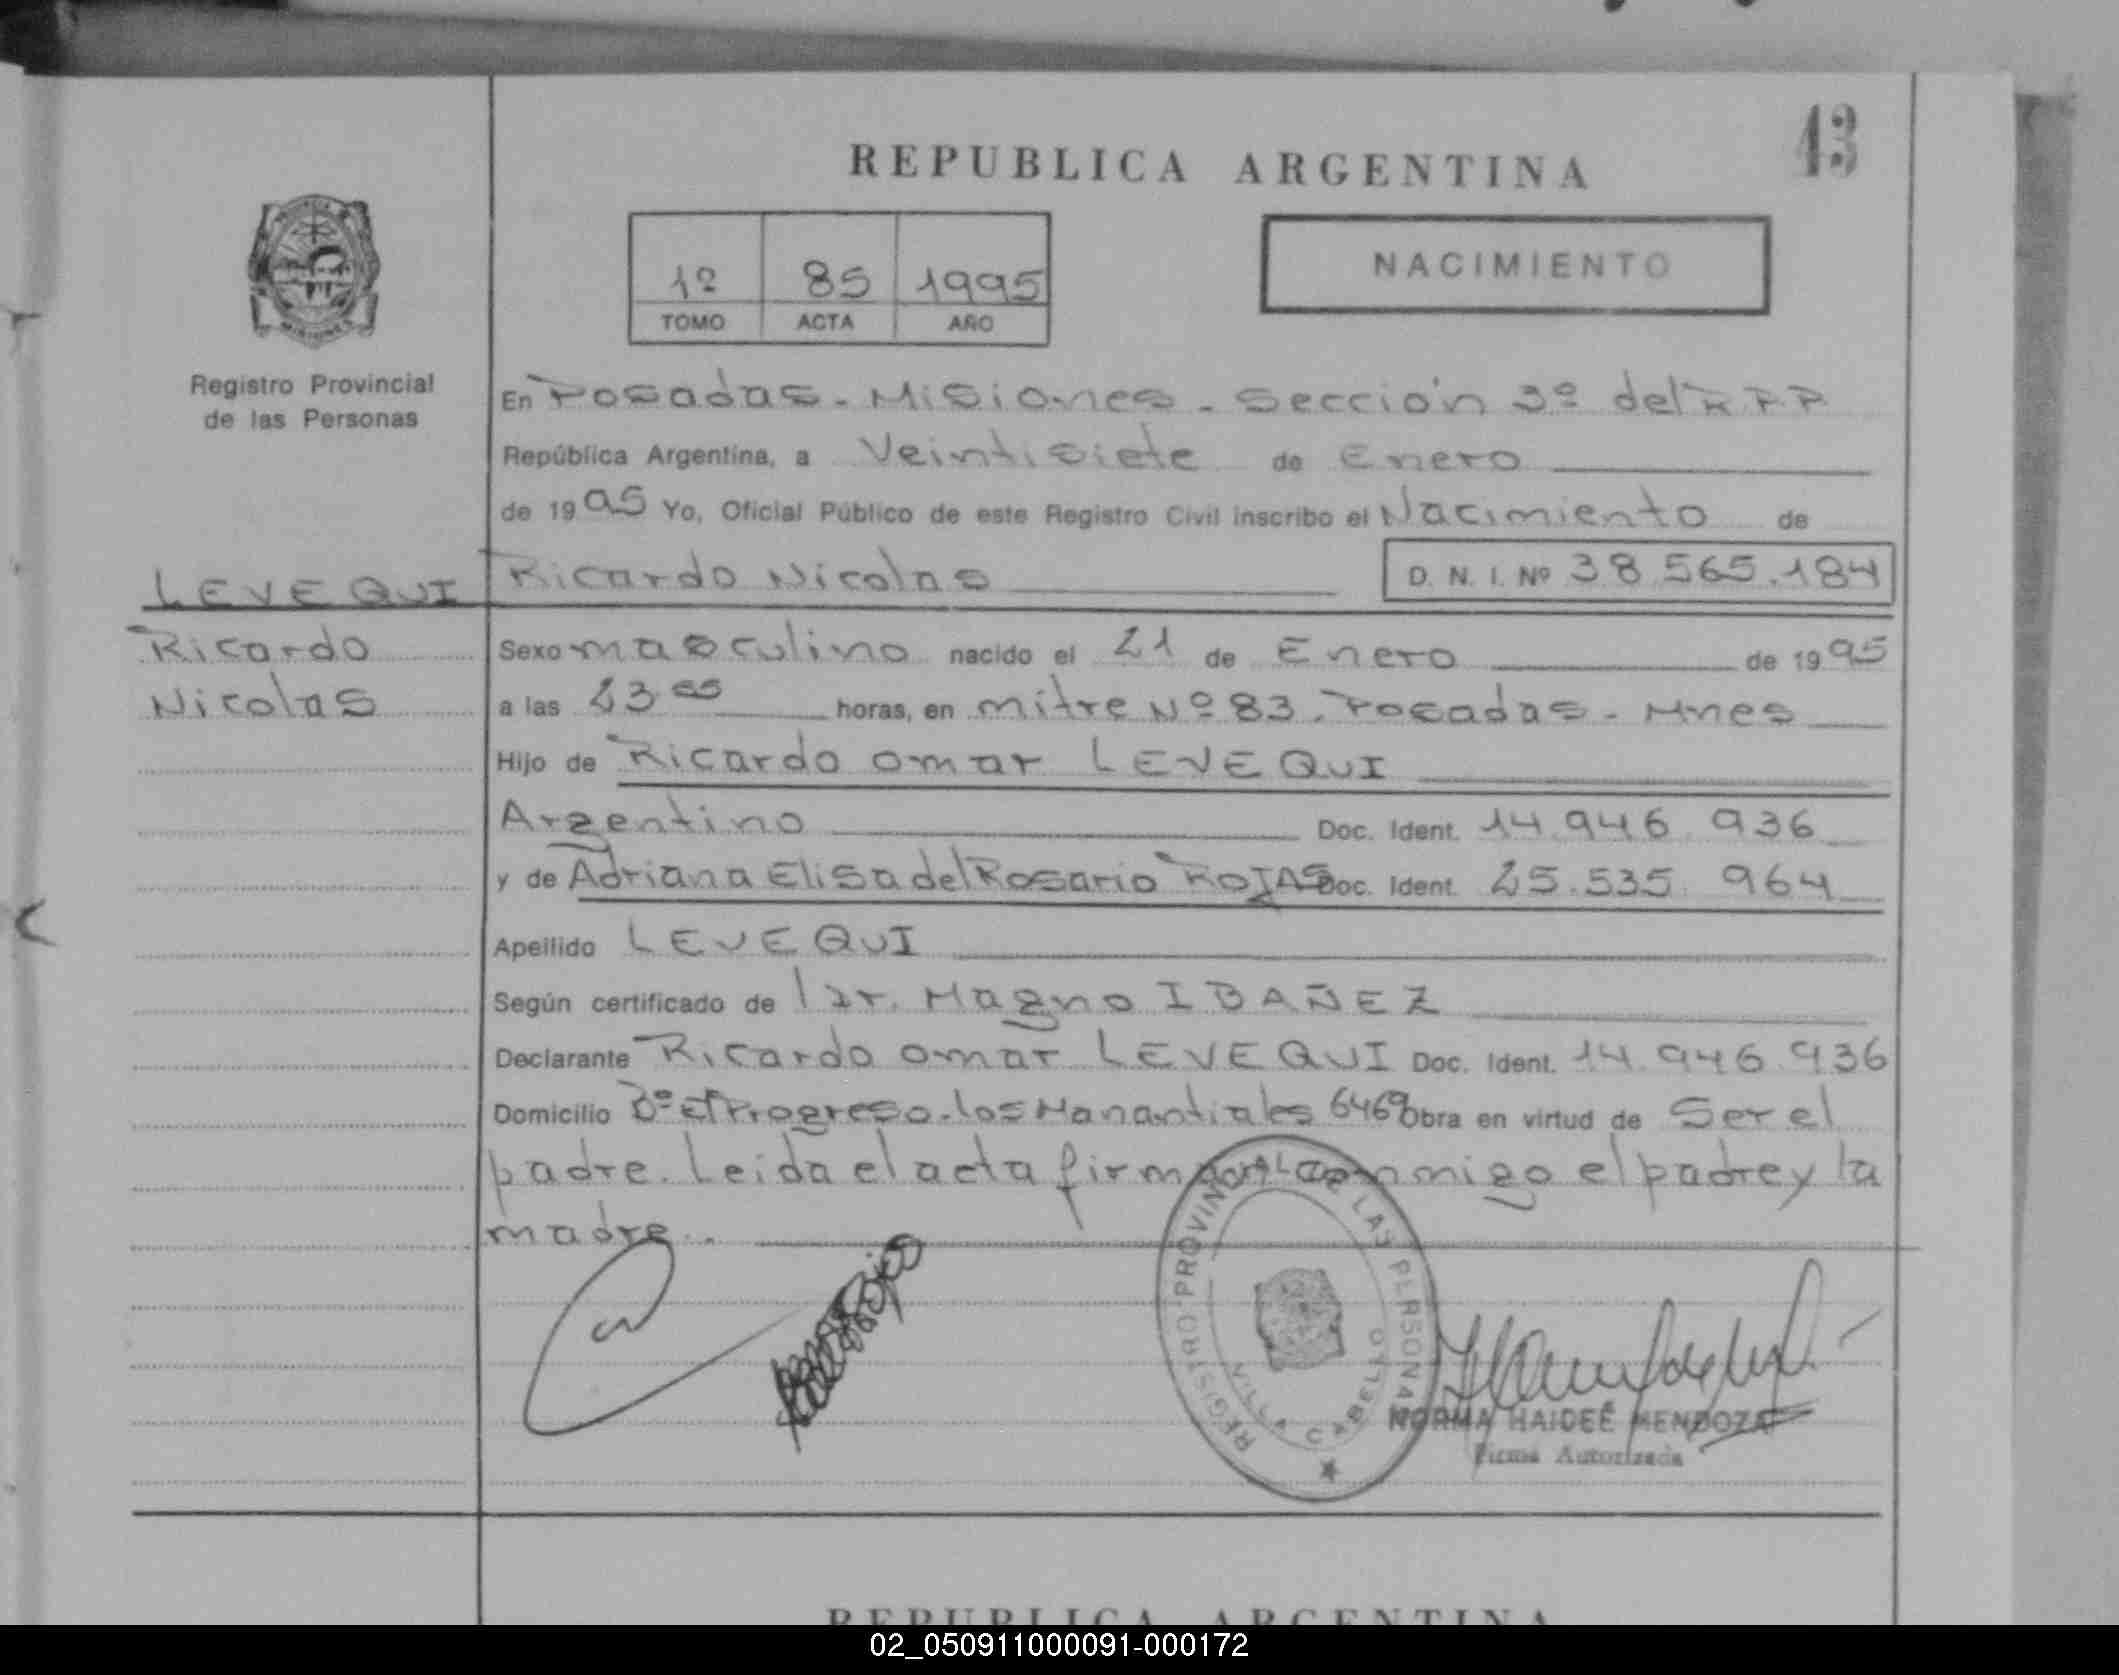 43
REPUBLICA ARGENTINA
1º 85 1995
TOMO ACTA AÑO
NACIMIENTO
Registro Provincial
de las Personas
En Posadas - Misiones - Sección 3º del R.P.P
República Argentina, a Veintisiete de Enero
de 1995 Yo, Oficial Público de este Registro Civil inscribo el Nacimiento de
LEVEQUI
Ricardo
Nicolas
Ricardo Nicolas D. N. I. Nº 38.565.184
Sexo masculino nacido el 21 de Enero de 1995
a las 23 horas, en mitre Nº 83. Posadas - Mnes
Hijo de Ricardo Omar LEVEQUI
Argentino Doc. Ident. 14.946.936
y de Adriana Elisa del Rosario ROJAS Doc. Ident. 25.535.964
Apellido LEVEQUI
Según certificado de Dr. Magno IBAÑEZ
Declarante Ricardo Omar LEVEQUI Doc. Ident. 14.946.936
Domicilio Bº El Progreso - los Manantiales 6469 Obra en virtud de Ser el
padre. Leida el acta firman conmigo el padre y la
madre..
REGISTRO PROVINCIAL DE LAS PERSONAS
VILLA CABELLO
NORMA HAIDEÉ MENDOZA
Firma Autorizada
REPUBLICA ARGENTINA
02_050911000091-000172